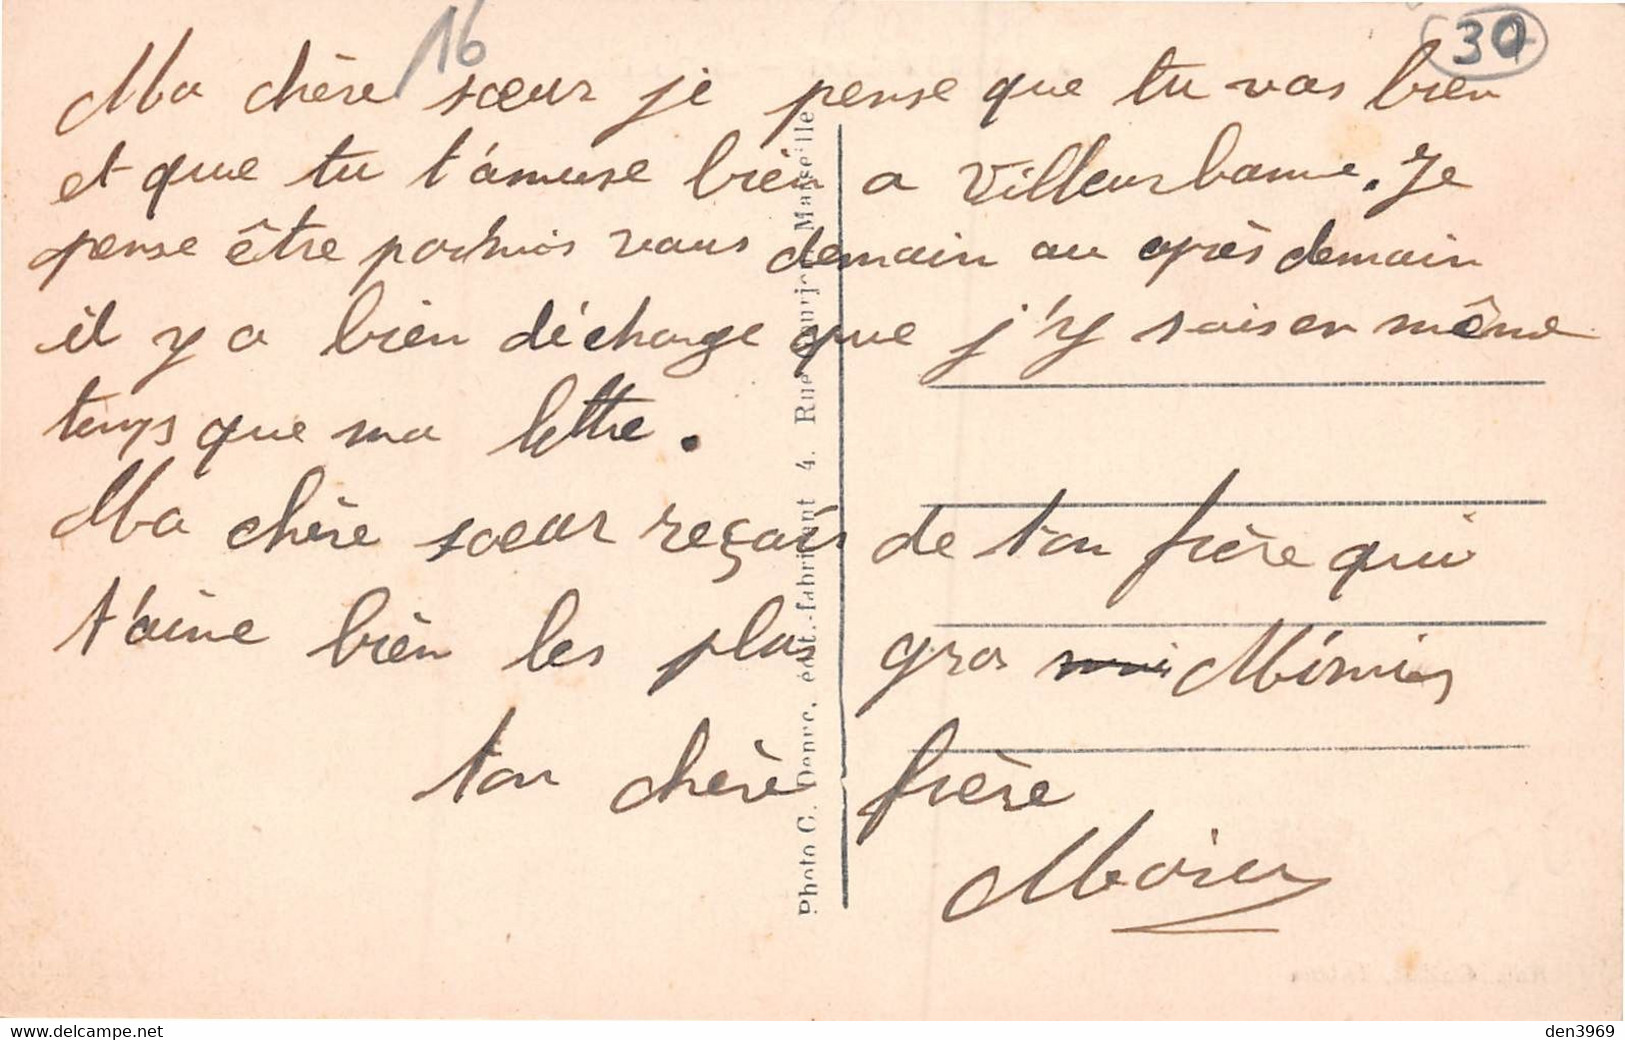 16
30
Ma chère sœur je pense que tu vas bien
et que tu t'amuse bien a Villeurbanne. Je
pense être parmis vous demain au après demain
il y a bien déchange que j'y sais en même
temps que ma lettre.
Ma chère sœur reçais de ton frère qui
t'aime bien les plus gros Mimis
ton chère frère
Photo C. édit.-fabricant 4, Rue Marseille
den3969